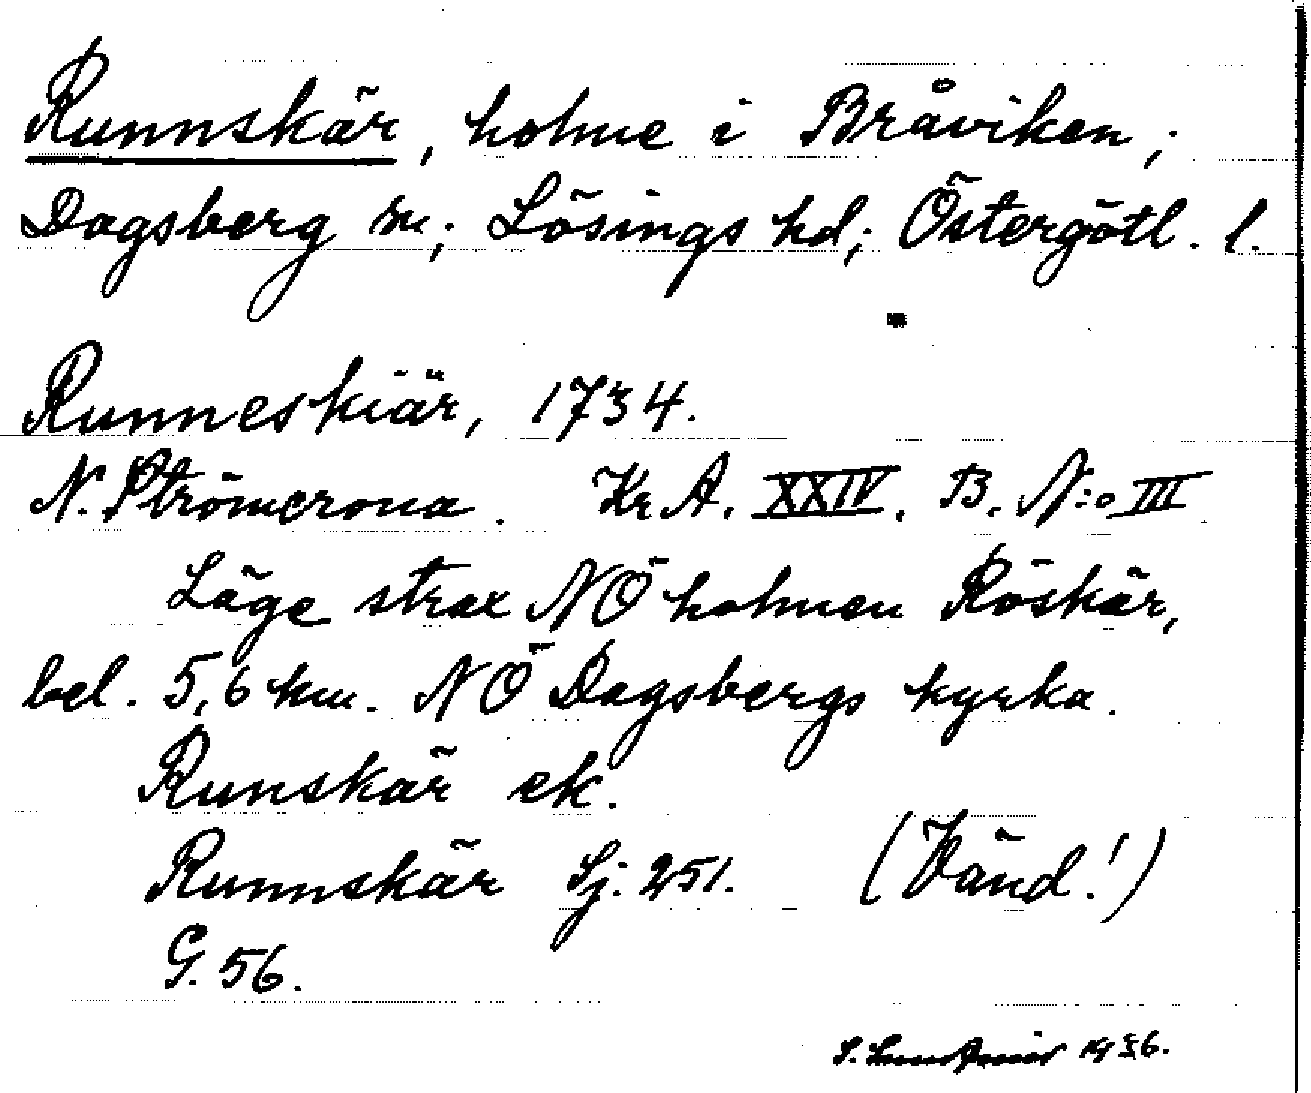 Runnskär, holme i Bråviken;
Dagsberg sn; Lösings hd; Östergötl. l.
Runneskiär, 1734.
N. Strömcrona. Kr A. XXIV. B. N:o III
Läge strax NÖ holmen Röskär,
bel. 5,6 km. NÖ Dagsbergs kyrka.
Runskär ek.
Runnskär Sj. 251. (Vänd!)
G. 56.
S. 1956.